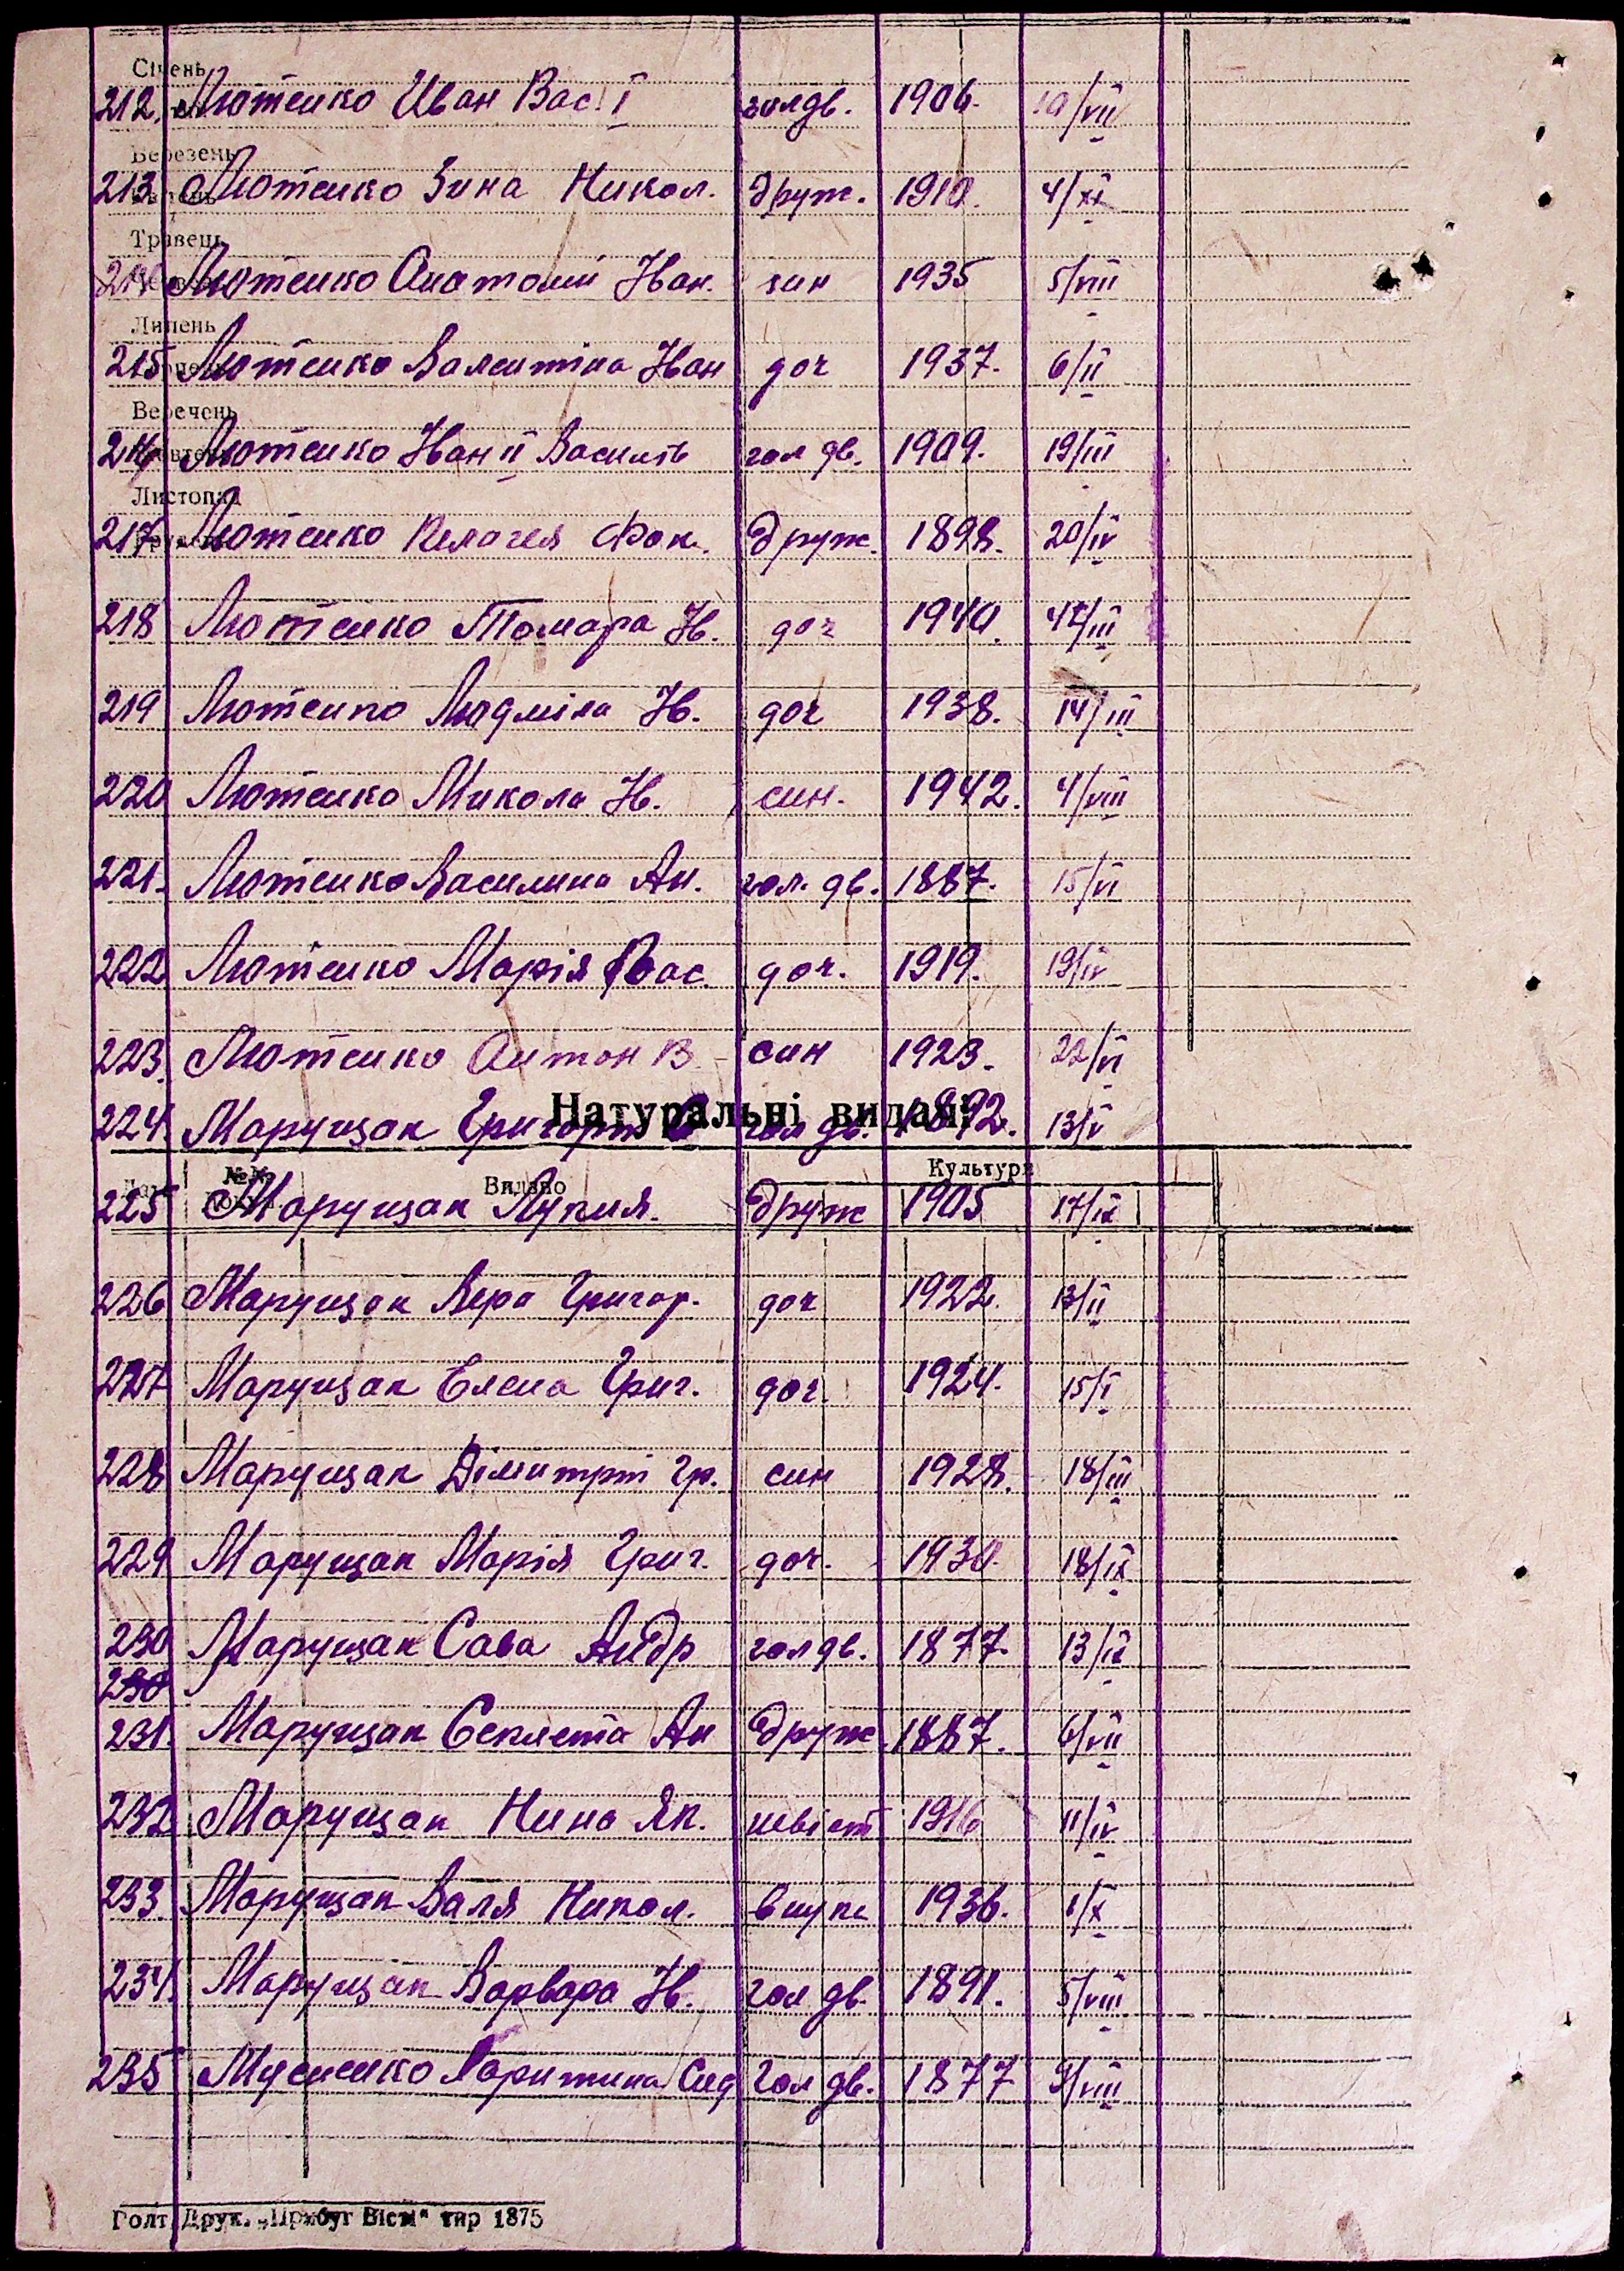 Січень
212. Лютенко Иван Вас. I гол дв. 1906. 10/VII
Березень
213 Лютенко Зина Никол. друж. 1910. 4/XI
Травець
214 Лютенко Анатолий Іван. син 1935 5/VIII
Липень
215 Лютенко Валентіна Іван доч 1937. 6/II
Веречень
216 Лютенко Іван II Василів гол дв. 1909. 19/III
Листопад
217 Лютенко Пелагея Фок. друж. 1898. 20/IV
218 Лютенко Томара Ів. доч 1940. /III
219 Лютенко Людміла Ів. доч 1938. 14/III
220 Лютенко Микола Ів. син. 1942. 4/VIII
221. Лютенко Василина Ан. гол. дв. 1887. 15/VI
222 Лютенко Марія Вас. доч. 1919. 19/IV
223. Лютенко Антон В. син 1923. 22/VI
Натуральні видачі
224. Марущак Григорій гол дв. 1892. 13/V
№№ Видано Культури
225 Марущак Лукия. друж 1905 17/IX
226 Марущак Вера Григор. доч 1922. 13/II
227 Марущак Елена Григ. доч. 1924. 15/I
228 Марущак Дімитрий Гр. син 1928. 18/III
229 Марущак Марія Григ. доч. 1930. 18/IX
230 Марущак Сава Андр гол дв. 1877. 13/IX
230
231. Марущак Секлета Ан друж. 1887. 6/VII
232 Марущак Нина Як. невіст 1916 11/IV
233. Марущак Валя Никол. внука 1936. 1/X
234. Марущак Варвара Ів. гол дв. 1891. 5/VIII
235 Мусиенко Харитина Сид гол дв. 1877 9/VIII
Голт. Друк. „Прибуг Вісті" тир 1875